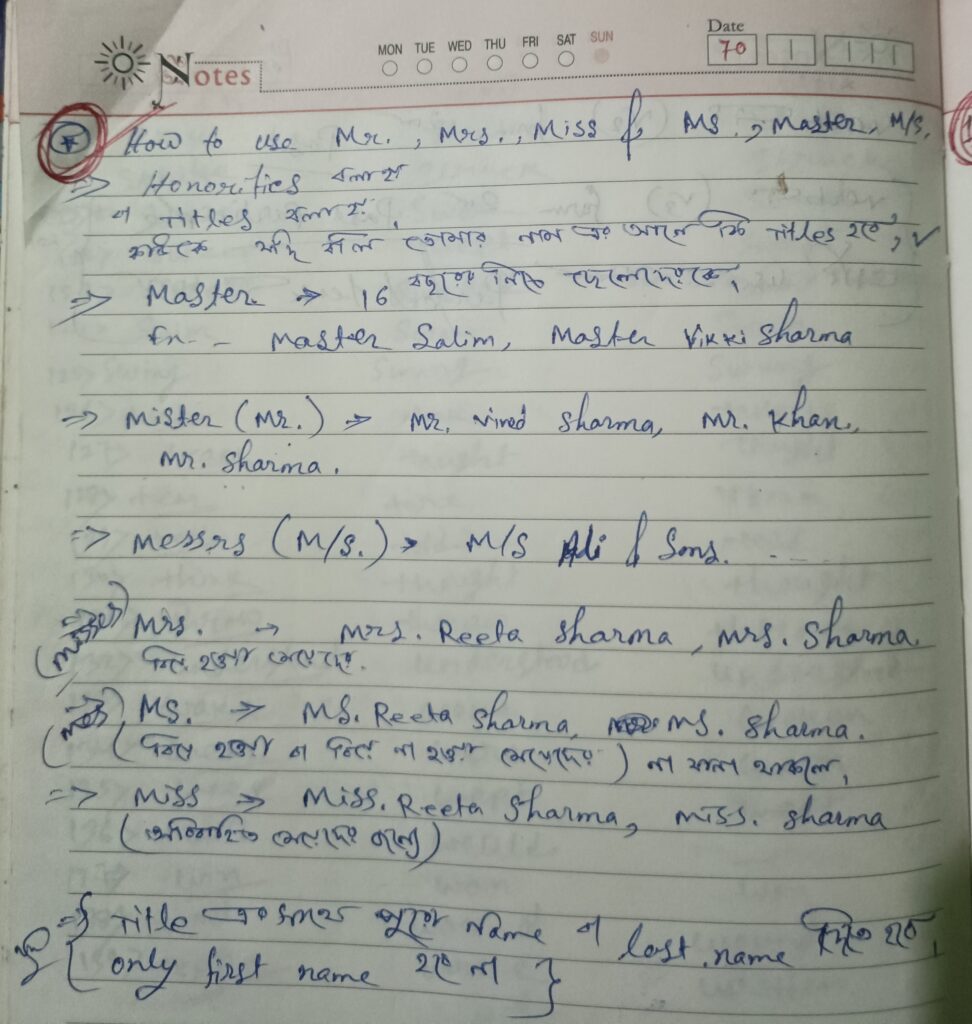 Notes
MON TUE WED THU FRI SAT SUN
Date
70
How to use Mr., Mrs., Miss & Ms., Master, M/s.
⇒ Honorities বলা হয়
বা Titles বলা হয়,
যদি বলি তোমার নাম এর আগে কি Titles হবে,
⇒ Master → 16 বছরের নিচে ছেলেদেরকে,
Ex-- Master Salim, Master Vikki Sharma
⇒ Mister (Mr.) → Mr. Vined Sharma, Mr. Khan,
Mr. Sharma.
⇒ Messrs (M/S.) → M/S Ali & Sons. ----
⇒ Mrs. → Mrs. Reeta Sharma, Mrs. Sharma.
বিয়ে হওয়া মেয়েদের.
⇒ MS. → MS. Reeta Sharma, MS. Sharma.
(বিয়ে হওয়া বা বিয়ে না হওয়া মেয়েদের) না জানা থাকলে,
⇒ Miss → Miss. Reeta Sharma, Miss. Sharma
(অবিবাহিত মেয়েদের জন্যে)
⇒ { Title এর সাথে পুরো Name বা last name দিতে হবে,
only first name হবে না }